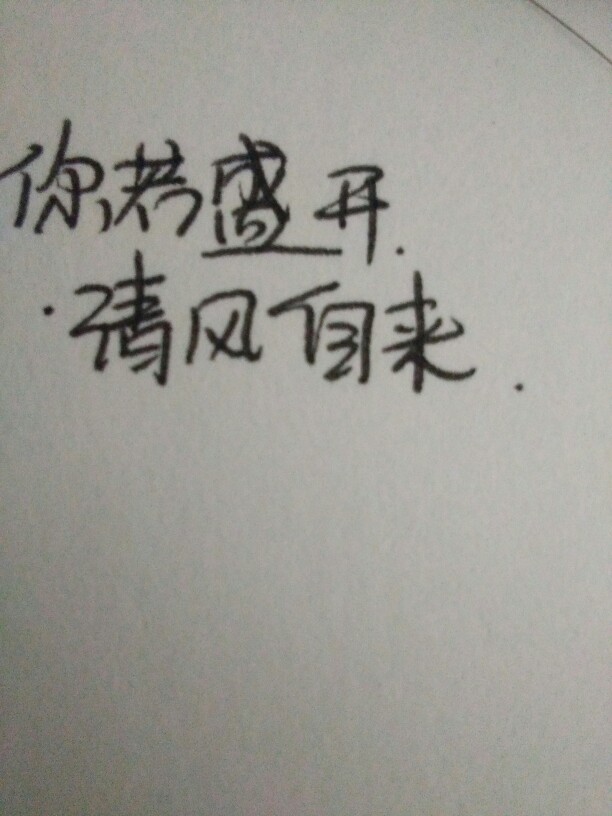 你若盛开.
·清风自来.